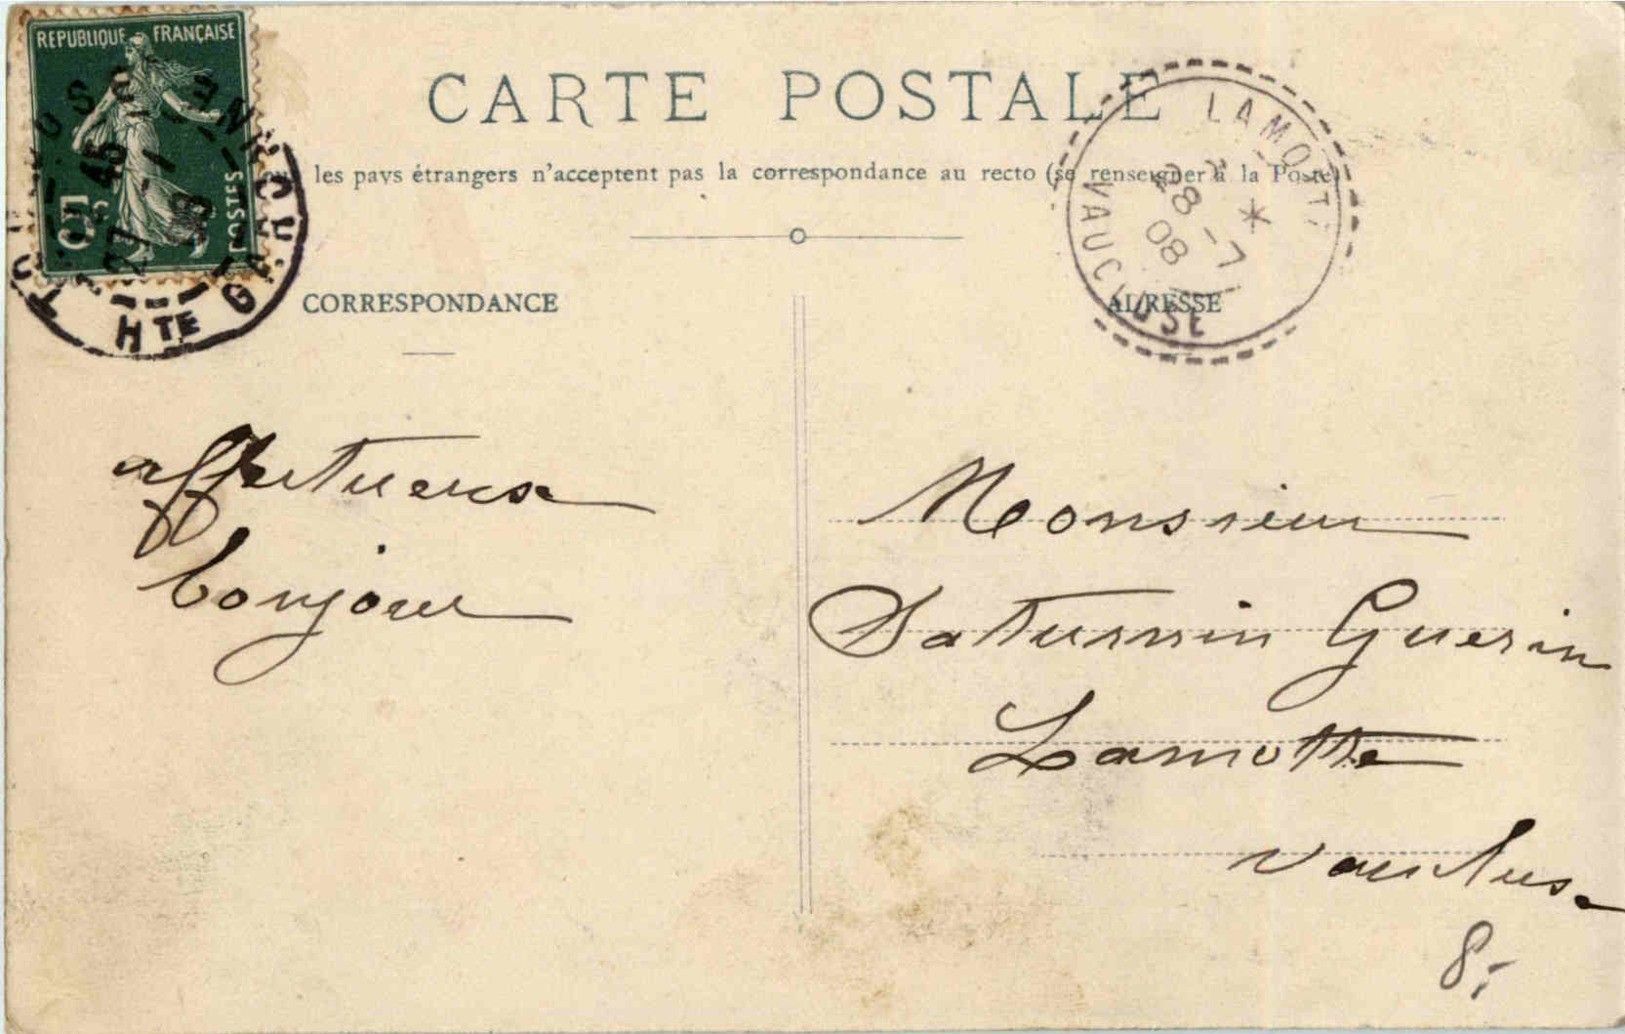 REPUBLIQUE FRANÇAISE
POSTES
5
CARTE POSTALE
les pays étrangers n'acceptent pas la correspondance au recto (se renseigner à la Poste)
CORRESPONDANCE
ADRESSE
HTE GARONNE
27 -7
08
LAMOTTE
28 -7
08
VAUCLUSE
affectueuse
bonjour
Monsieur
Saturnin Guerin
Lamotte
Vaucluse
8,-